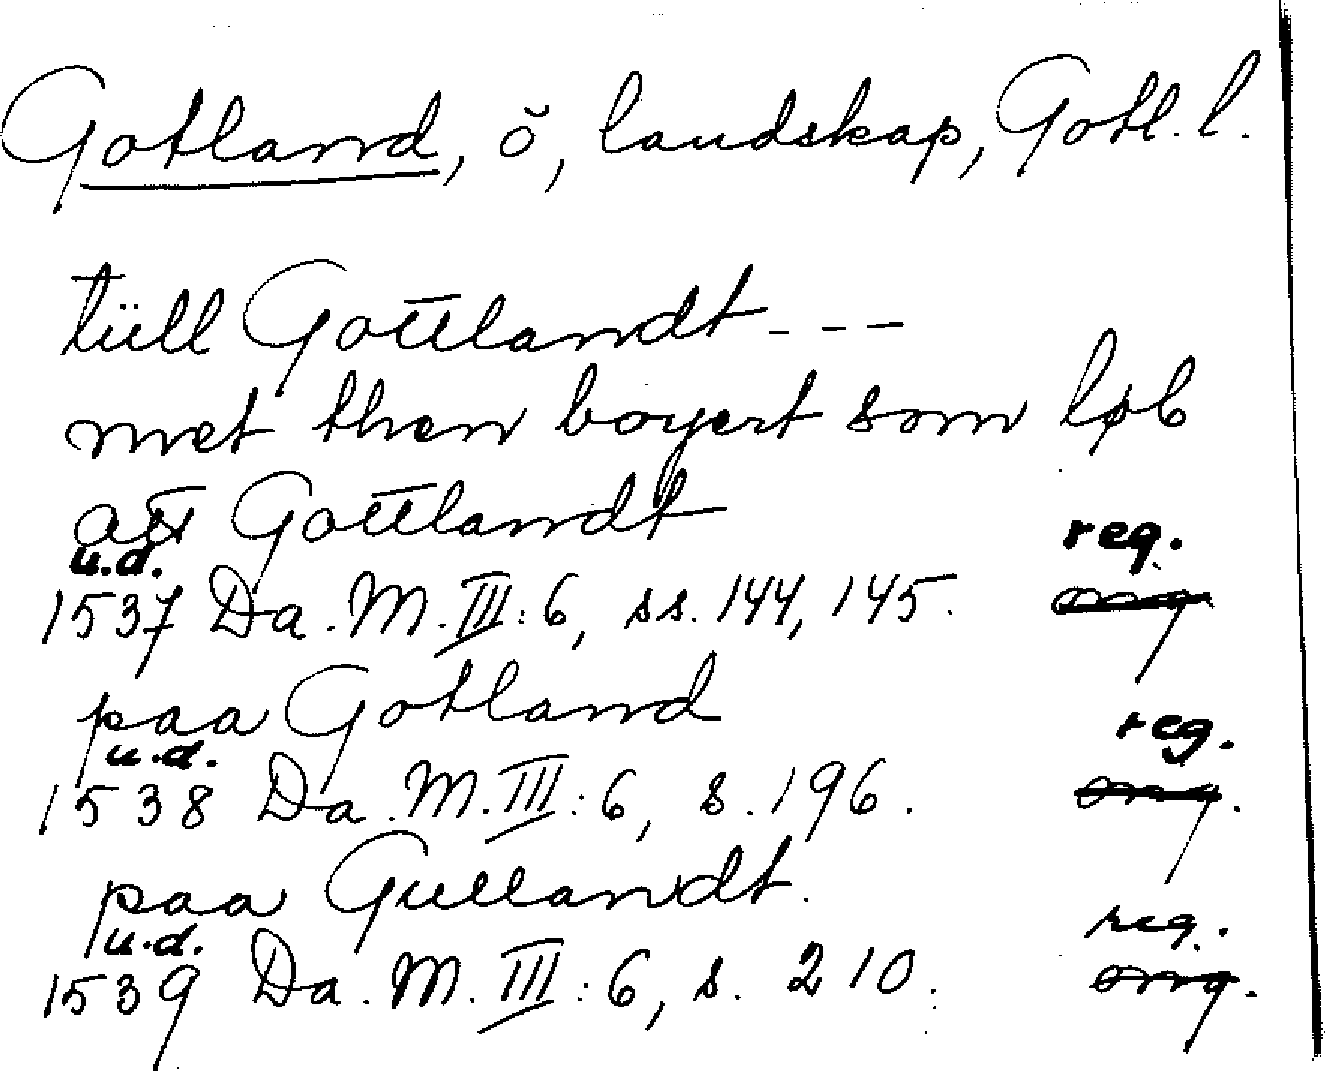 Gotland, ö, landskap, Gotl. l.
tüll Gottlandt ---
met then boyert som løb
att Gottlandt
u.d. reg.
1537 Da. M. III: 6, ss. 144, 145. orig
paa Gotland
u.d. reg.
1538 Da. M. III: 6, s. 196. orig.
paa Gullandt.
u.d. reg.
1539 Da. M. III: 6, s. 210. orig.